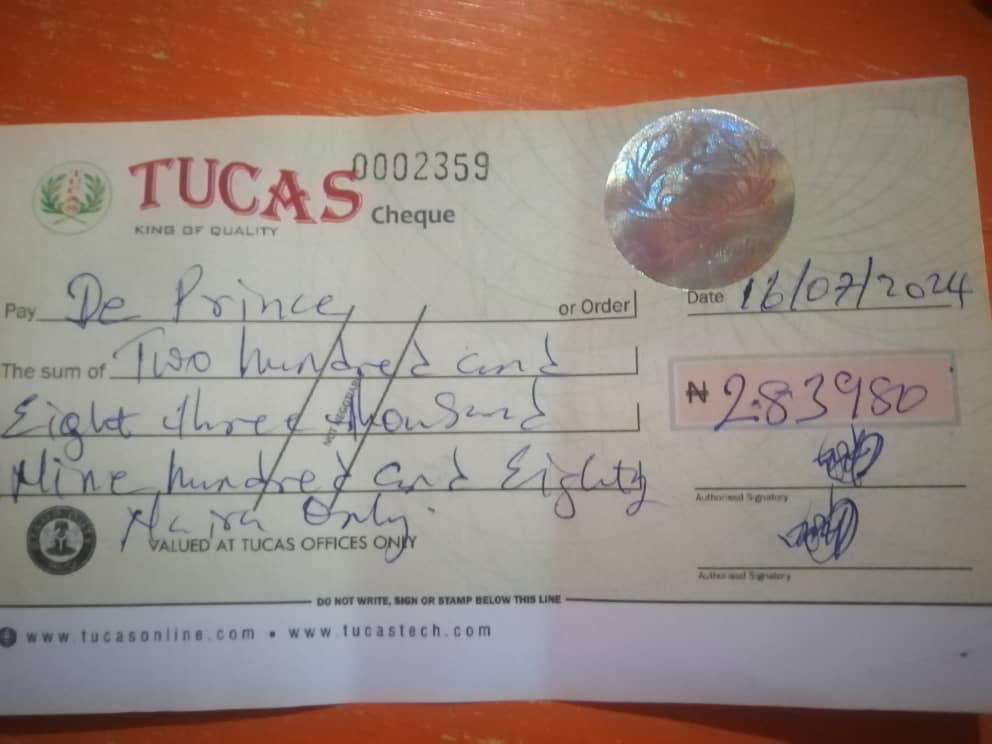 TUCAS
0002359
KING OF QUALITY
Cheque
Pay De Prince or Order
Date 16/07/2024
The sum of Two hundred and
Eight three thousand
₦ 283980
NOT NEGOTIABLE
Nine hundred and Eighty
Authorised Signatory
Naira Only.
VALUED AT TUCAS OFFICES ONLY
Authorised Signatory
DO NOT WRITE, SIGN OR STAMP BELOW THIS LINE
www.tucasonline.com • www.tucastech.com